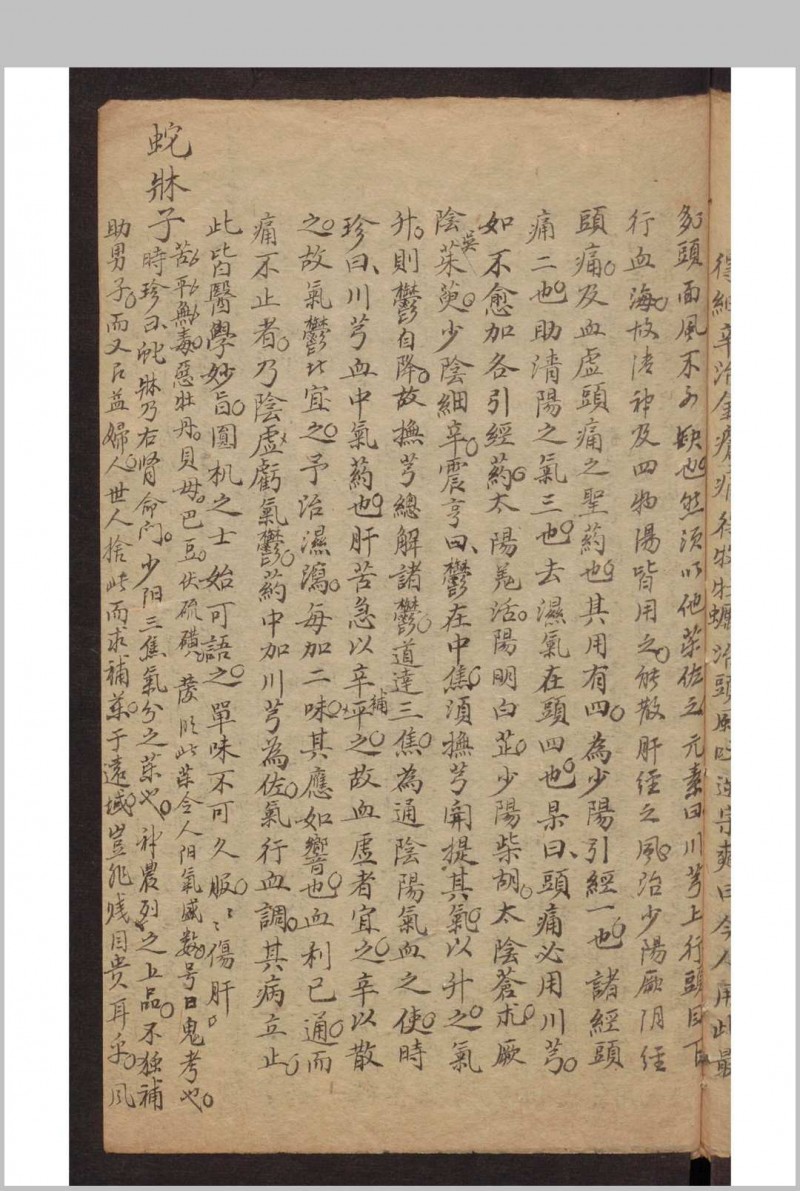 得細辛治金瘡痛得牡蠣治頭風吐逆宗奭曰今人用此最
多頭面風不可缺也然須以他藥佐之元素曰川芎上行頭目下
行血海故清神及四物湯皆用之能散肝經之風治少陽厥阴經
頭痛及血虛頭痛之聖药也其用有四為少陽引經一也諸經頭
痛二也助清陽之氣三也去濕氣在頭四也杲曰頭痛必用川芎
如不愈加各引經药太陽羌活陽明白芷少陽柴胡太陰蒼朮厥
陰吳茱萸少陰細辛震亨曰鬱在中焦須撫芎開提其氣以升之氣
升則鬱自降故撫芎總解諸鬱道達三焦為通陰陽氣血之使時
珍曰川芎血中氣药也肝苦急以辛補之故血虛者宜之辛以散
之故氣鬱者宜之予治濕瀉每加二味其應如響也血利已通而
痛不止者乃陰虛虧氣鬱药中加川芎為佐氣行血調其病立止
此皆醫學妙旨圓机之士始可語之單味不可久服〻傷肝
蛇牀子
苦平無毒惡牡丹貝母巴豆伏硫磺此藥令人阳氣盛数号曰鬼考也
時珍曰蛇牀乃右肾命門少阳三焦氣分之藥也神農列之上品不獨補
助男子而又有益婦人世人捨此而求補藥于遠域豈非贱目贵耳乎風